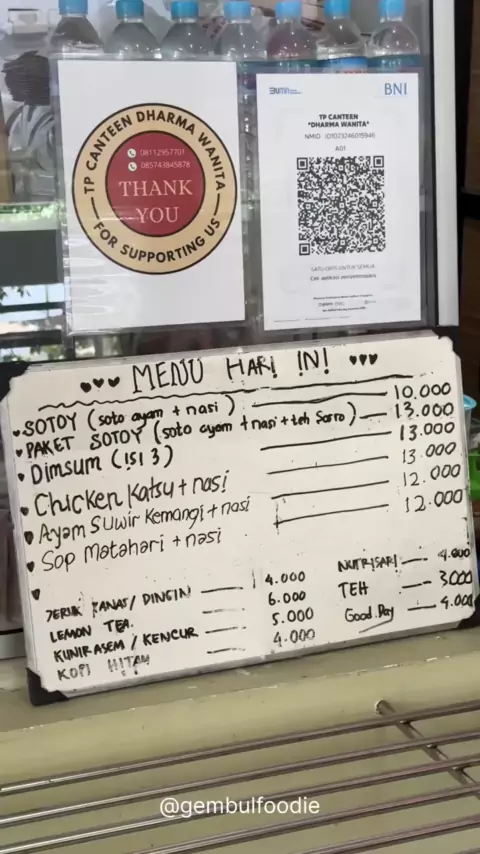 TP CANTEEN DHARMA WANITA
08112957701
085743845878
THANK
YOU
FOR SUPPORTING US
BNI
TP CANTEEN
"DHARMA WANITA"
NMID : ID1023246015946
A01
SATU QRIS UNTUK SEMUA
MENU HARI INI
SOTOY (soto ayam + nasi) 10.000
PAKET SOTOY (soto ayam + nasi + teh Sosro) 13.000
Dimsum (ISI 3) 13.000
Chicken Katsu + nasi 13.000
Ayam Suwir Kemangi + nasi 12.000
Sop Matahari + nasi 12.000
JERUK PANAS / DINGIN 4.000
LEMON TEA. 6.000
KUNIR ASEM / KENCUR 5.000
KOPI HITAM 4.000
NUTRISARI 4.000
TEH 3000
Good Day 4.000
@gembulfoodie